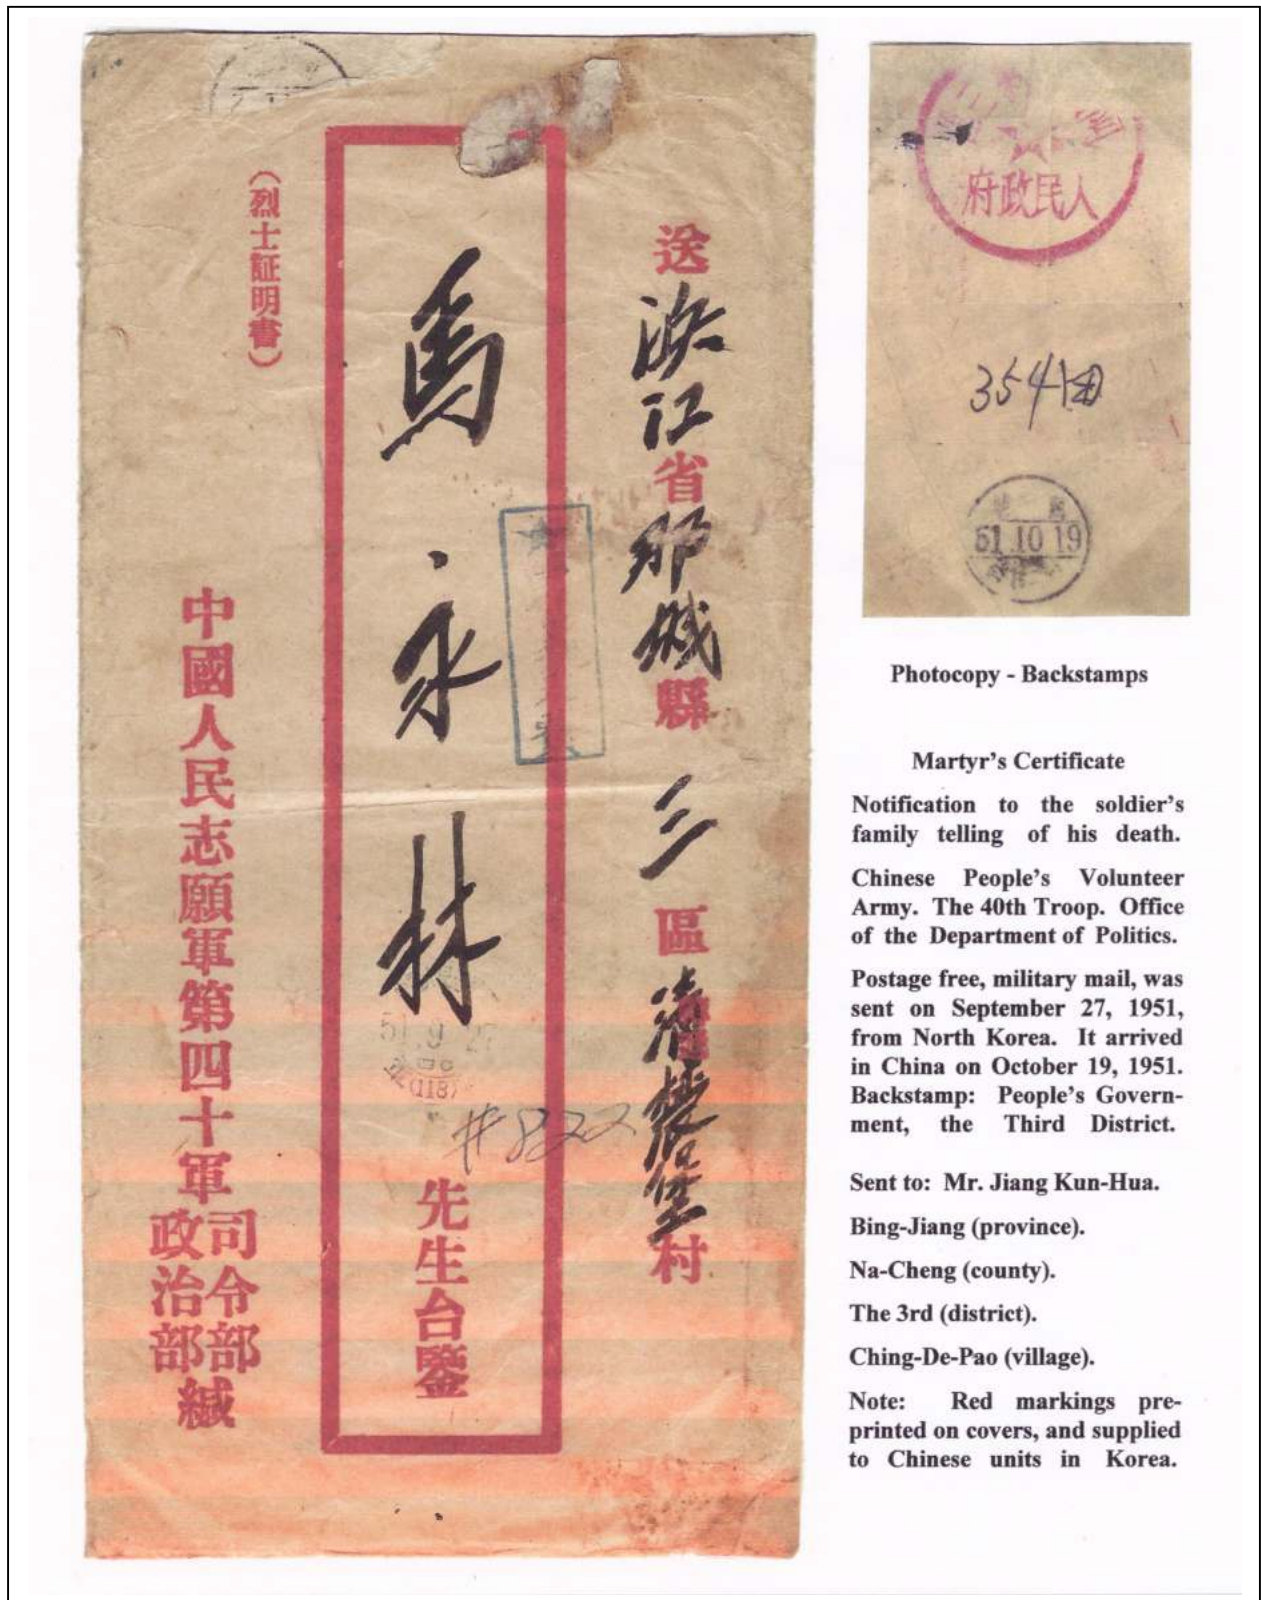 送浜江省那城縣三區清德堡村
馬永林先生台鑒
(烈士証明書)
中國人民志願軍第四十軍司令部政治部緘
51.9.27
(118)
#822
人民政府
354团
51.10.19
Photocopy - Backstamps
Martyr's Certificate
Notification to the soldier's
family telling of his death.
Chinese People's Volunteer
Army. The 40th Troop. Office
of the Department of Politics.
Postage free, military mail, was
sent on September 27, 1951,
from North Korea. It arrived
in China on October 19, 1951.
Backstamp: People's Govern-
ment, the Third District.
Sent to: Mr. Jiang Kun-Hua.
Bing-Jiang (province).
Na-Cheng (county).
The 3rd (district).
Ching-De-Pao (village).
Note: Red markings pre-
printed on covers, and supplied
to Chinese units in Korea.